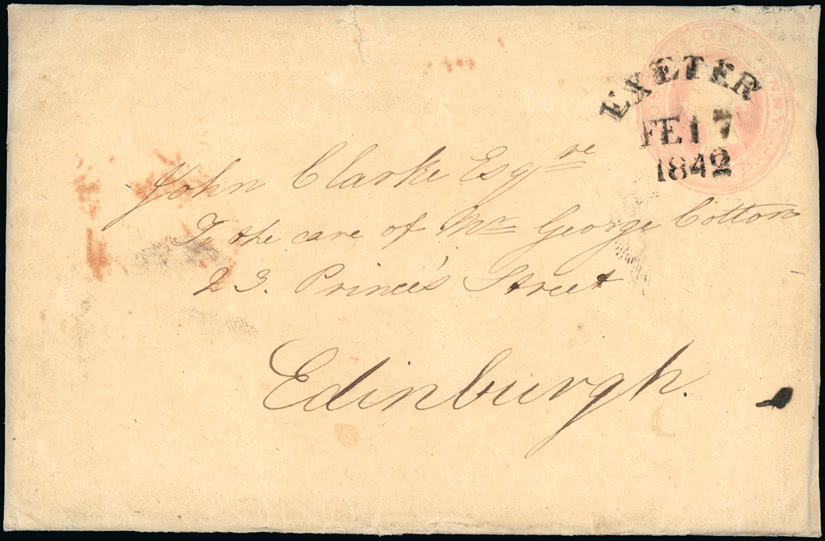 ONE PENNY
EXETER
FE 17
1842
John Clarke Esqre
To the care of Mr George Cotton
23. Prince's Street
Edinburgh.